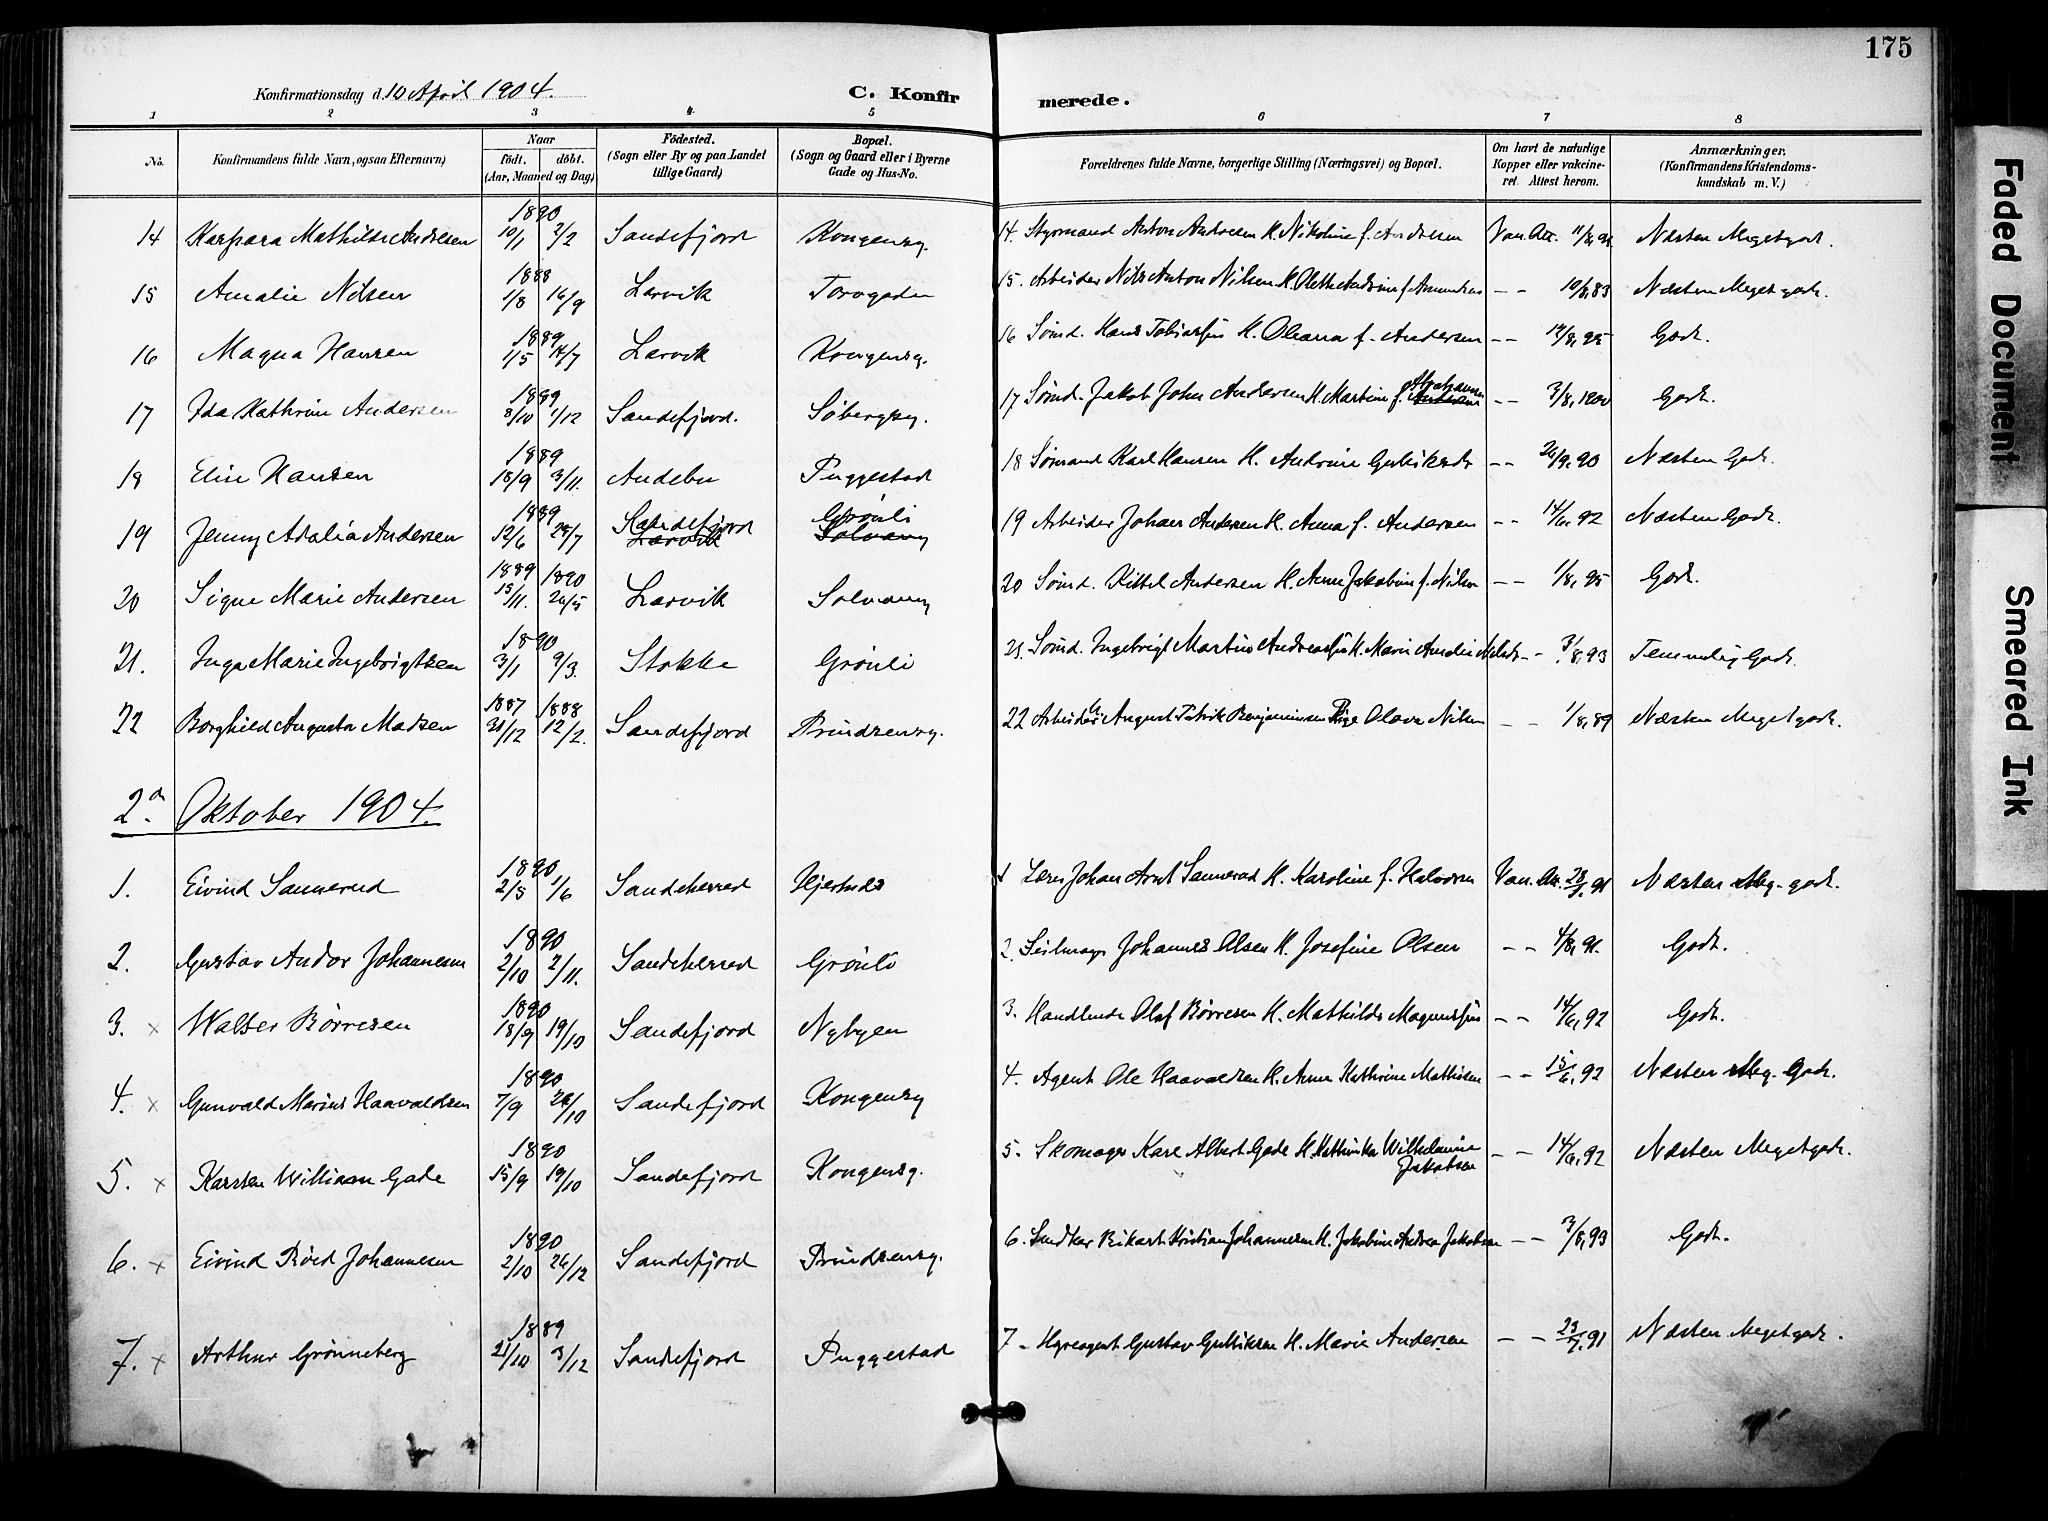 175
Konfirmationsdag d. 10 April 1904.
C. Konfirmerede.
1 2 3 4 5 6 7 8
No.
Konfirmandens fulde Navn, ogsaa Efternavn)
Naar
födt. döbt.
(Aar, Maaned og Dag)
Födested.
(Sogn eller By og paa Landet
tillige Gaard)
Bopæl.
(Sogn og Gaard eller i Byerne
Gade og Hus-No.
Forældrenes fulde Navne, borgerlige Stilling (Næringsvei) og Bopæl.
Om havt de naturlige
Kopper eller vakcine-
ret. Attest herom.
Anmærkninger,
(Konfirmandens Kristendoms-
kundskab m. V.)
14 Kaspara Mathilde Andresen 1890 10/1 2/2 Sandefjord Kongensg. 14. Styrmand Anton Andresen H. Nikoline f. Andresen Van. Att. 11/8,91 Næsten Meget godt.
15 Amalie Nilsen 1888 1/8 16/9 Larvik Torvgaden 15. Arbeider Nils Anton Nilsen H. Olette Andrine f. Amundsen -- 10/8,83 Næsten Meget godt.
16 Magna Hansen 1889 1/5 14/7 Larvik Kongensg. 16 Sømd. Hans Tobiassen H. Oleana f. Andersen -- 14/8,95 Godt.
17 Ida Kathrine Andersen 1889 8/10 1/12 Sandefjord. Søbergsg. 17 Sømd. Jakob Johan Andersen H. Martine f. Andersen Abrahamsen -- 3/8,1900 Godt.
18 Elin Hansen 1889 15/9 3/11. Andebu Puggestad 18 Sømand Karl Hansen H. Andrine Gulliksdr -- 26/9,90 Næsten Godt.
19 Jenny Adalia Andersen 1889 12/6 28/7 Sandefjord Larvik Grønli Solvang 19 Arbeider Johan Andersen H. Anna f. Andersen -- 14/6,92 Næsten Godt.
20 Signe Marie Andersen 1889 15/11. 1890 26/5 Larvik Solvang 20 Sømd. Kittel Andersen H. Anne Jakobine f. Nilsen -- 1/8,95 Godt.
21. Inga Marie Ingebrigtsen 1890 3/1 9/3. Stokke Grønli 21. Sømd. Ingebrigt Martin Andreassen H. Marie Amalie Nilsdr -- 3/8,93 Temmelig Godt.
22 Borghild Augusta Madsen 1887 31/12 1888 12/2. Sandefjord Prindsensg. 22 Arbeider August Fredrik Benjaminsen Pige Olava Nilsen -- 1/8,89 Næsten Meget godt.
2den Oktober 1904.
1. Eivind Sannerud 1890 2/5 1/6 Sandeherred Hjertnes 1 Lærer Johan Arnt Sannerud H. Karoline f. Halvorsen Van. Att. 23/7.91 Næsten Meg. godt.
2. Gustav Andor Johannesen 1890 2/10 2/11. Sandeherred Grønli 2. Seilmager Johannes Olsen H. Josefine Olsen -- 4/8,91. Godt.
3. x Walter Børresen 1890 18/9 19/10 Sandefjord Nybyen 3. Handlende Olaf Børresen H. Mathilde Magnussen -- 14/6,92 Godt.
4. x Gunvald Marius Haavaldsen 1890 7/9 26/10 Sandefjord Kongensg 4. Agent Ole Haavaldsen H. Anne Kathrine Mathisen -- 15/6,92 Næsten Meg. Godt.
5. x Karsten William Gade 1890 15/9 19/10 Sandefjord Kongensg. 5. Skomager Karl Albert Gade H. Kathinka Wilhelmine Jakobsen -- 14/6,92 Næsten Meget godt.
6. x Eivind Røed Johannesen 1890 2/10 26/12 Sandefjord Prindsensg. 6. Snedker Rikart Kristian Johannesen H. Jakobine Andrea Jakobsen -- 3/8,93 Godt.
7. x Arthur Grønneberg 1889 21/10 3/12 Sandefjord Puggestad 7. Hyreagent Gustav Gulliksen H. Marie Andersen -- 23/7,91 Næsten Meget godt.
Faded Document
Smeared Ink